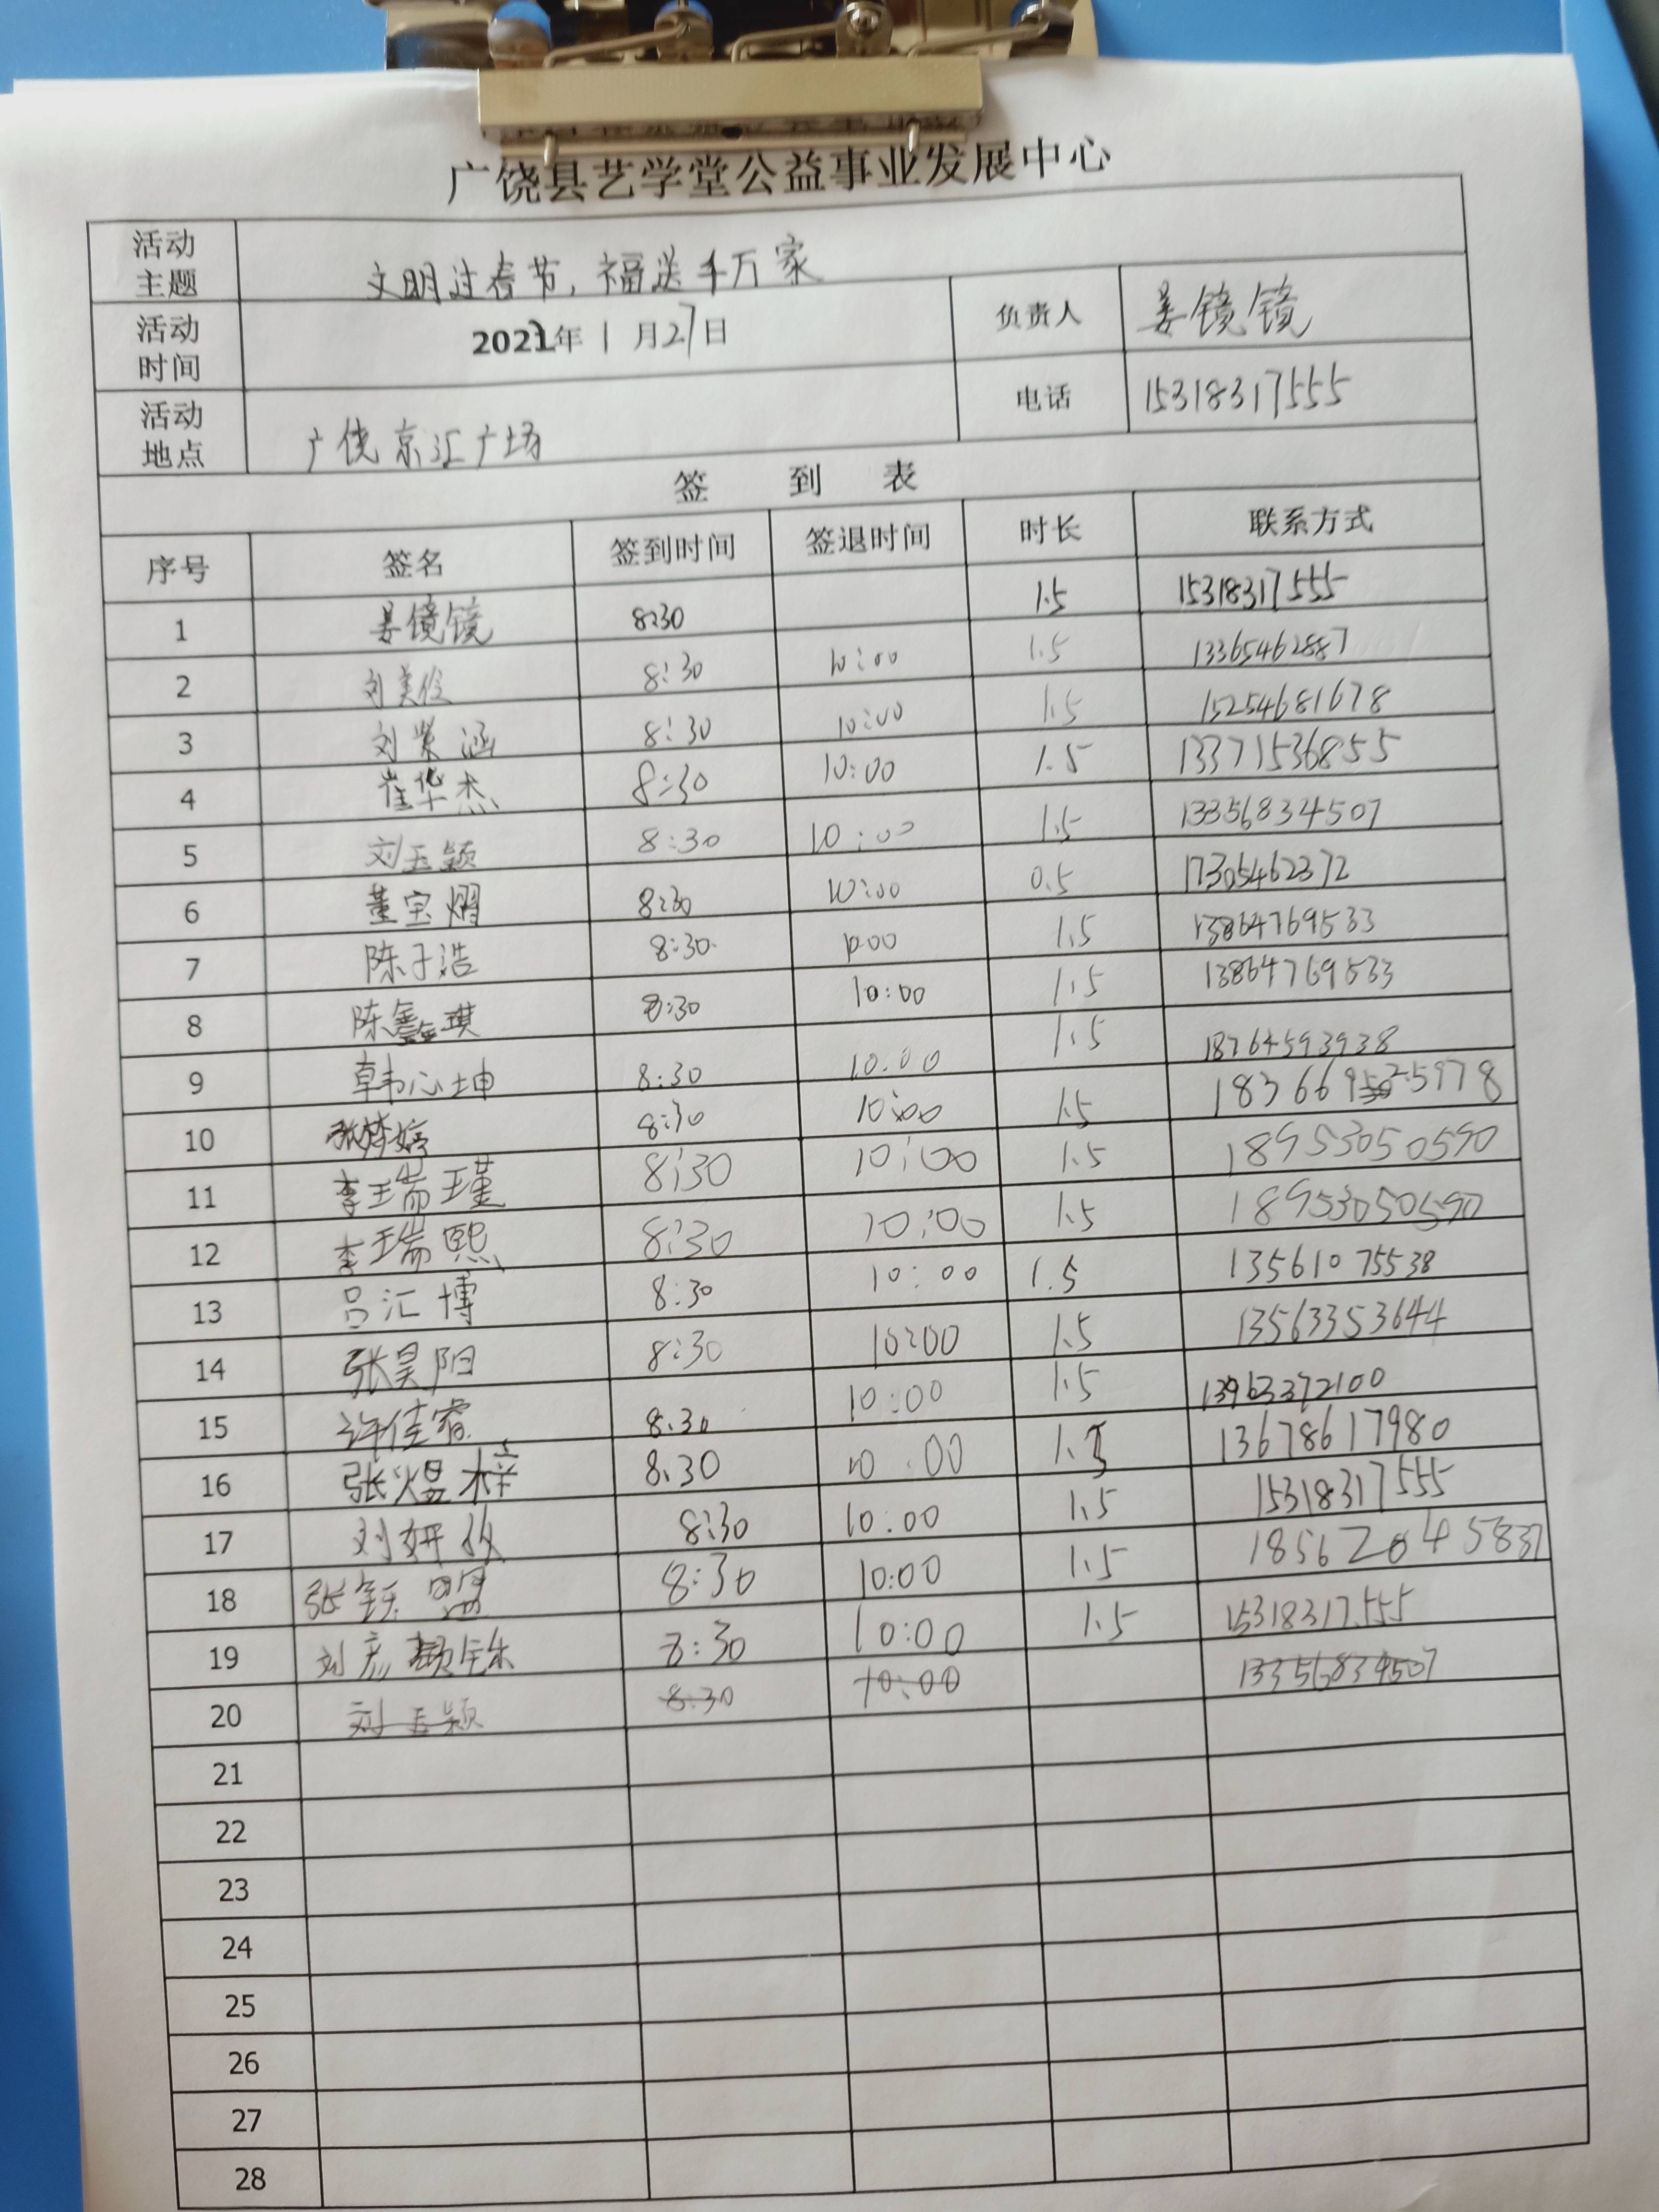 广饶县艺学堂公益事业发展中心
活动主题 文明过春节，福送千万家
活动时间 2022年 1 月27日 负责人 姜镜镜
活动地点 广饶京汇广场 电话 15318317555
签 到 表
序号 签名 签到时间 签退时间 时长 联系方式
1 姜镜镜 8:30 1.5 15318317555
2 刘美俊 8:30 10:00 1.5 13365462887
3 刘紫涵 8:30 10:00 1.5 15254681678
4 崔华杰 8:30 10:00 1.5 13371536855
5 刘玉颖 8:30 10:00 1.5 13356834507
6 董宝熠 8:30 10:00 0.5 17305462372
7 陈子浩 8:30 10:00 1.5 13864769533
8 陈鑫琪 8:30 10:00 1.5 13864769533
9 韩心坤 8:30 10:00 1.5 18764593938
10 张梦婷 8:30 10:00 1.5
11 李瑞瑾 8:30 10:00 1.5 18953050590
12 李瑞熙 8:30 10:00 1.5 18953050590
13 吕汇博 8:30 10:00 1.5 13561075538
14 张昊阳 8:30 10:00 1.5 13563353644
15 许佳睿 8:30 10:00 1.5 13963372100
16 张煜梓 8:30 10:00 1.5 13678617980
17 刘妍 8:30 10:00 1.5 15318317555
18 张钰盟 8:30 10:00 1.5 18562045837
19 刘彦 8:30 10:00 1.5 15318317555
20 刘玉颖 8:30 10:00 13356834507
21
22
23
24
25
26
27
28